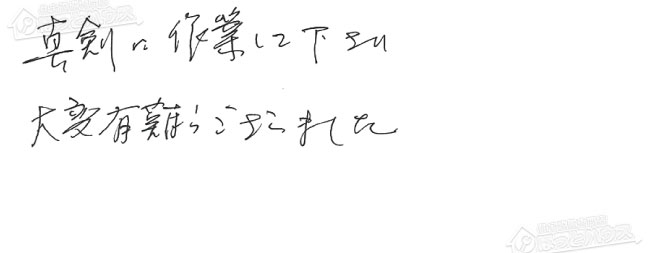 真剣に作業して下さい
大変有難うございました